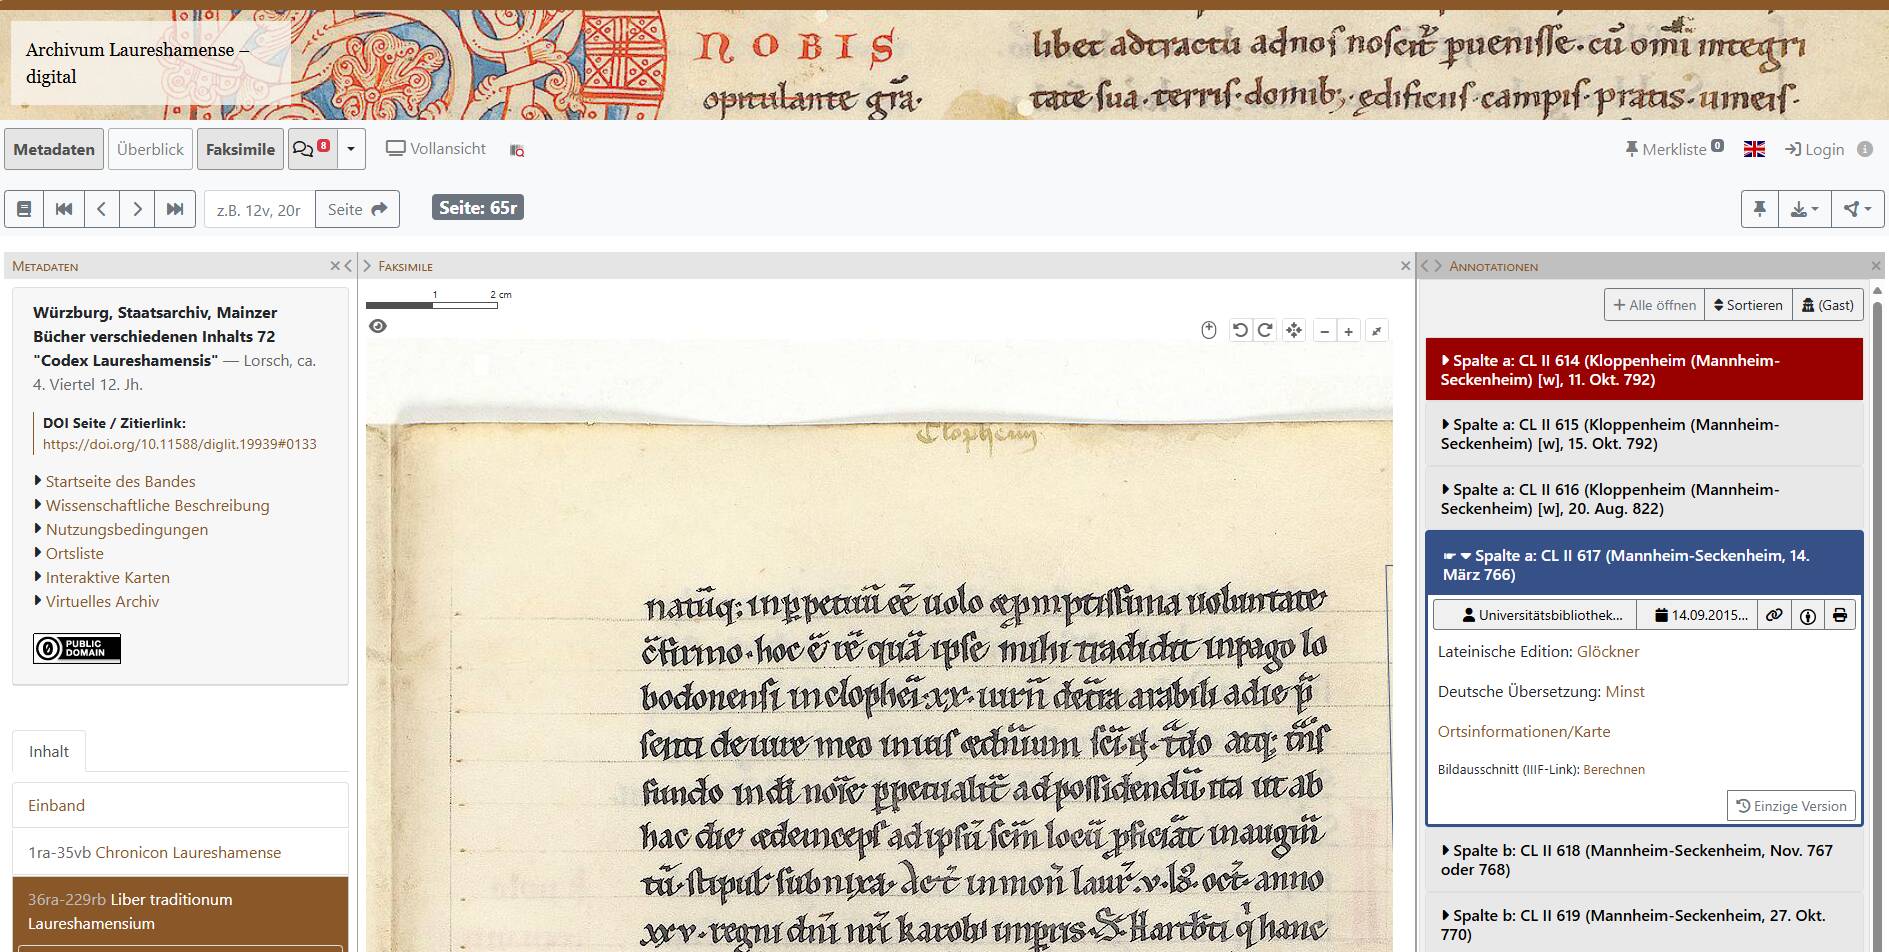 Archivum Laureshamense –
digital
NOBIS
opitulante gr̄a·
libet adtractu ad nos noscit̄ puenisse·cū om̄i integri
tate sua·terris·domib;·edificiis campis·pratis·uineis·
Metadaten
Überblick
Faksimile
8
Vollansicht
Merkliste 0
Login
z.B. 12v, 20r
Seite
Seite: 65r
Metadaten
Würzburg, Staatsarchiv, Mainzer
Bücher verschiedenen Inhalts 72
"Codex Laureshamensis" — Lorsch, ca.
4. Viertel 12. Jh.
DOI Seite / Zitierlink:
https://doi.org/10.11588/diglit.19939#0133
Startseite des Bandes
Wissenschaftliche Beschreibung
Nutzungsbedingungen
Ortsliste
Interaktive Karten
Virtuelles Archiv
PUBLIC
DOMAIN
Inhalt
Einband
1ra-35vb Chronicon Laureshamense
36ra-229rb Liber traditionum
Laureshamensium
Faksimile
1 2 cm
uolo uoluntate
c̄firmo·hoc ē quā ipse mihi tradidit inpago lo
bodonensi inclopheī·xx· arabili adie p̄
senti deiure meo inius
fundo ppetualit̄ adpossidendū ita ut ab
hac die adipsū locū pficiat inaugm̄
tū·stipul subnixa·Act̄ inmoñ laur̄·v·id·oct̄·anno
xxv·regni dn̄i nr̄i karoli impris· hanc
Annotationen
Alle öffnen
Sortieren
(Gast)
Spalte a: CL II 614 (Kloppenheim (Mannheim-
Seckenheim) [w], 11. Okt. 792)
Spalte a: CL II 615 (Kloppenheim (Mannheim-
Seckenheim) [w], 15. Okt. 792)
Spalte a: CL II 616 (Kloppenheim (Mannheim-
Seckenheim) [w], 20. Aug. 822)
Spalte a: CL II 617 (Mannheim-Seckenheim, 14.
März 766)
Universitätsbibliothek...
14.09.2015...
Lateinische Edition: Glöckner
Deutsche Übersetzung: Minst
Ortsinformationen/Karte
Bildausschnitt (IIIF-Link): Berechnen
Einzige Version
Spalte b: CL II 618 (Mannheim-Seckenheim, Nov. 767
oder 768)
Spalte b: CL II 619 (Mannheim-Seckenheim, 27. Okt.
770)